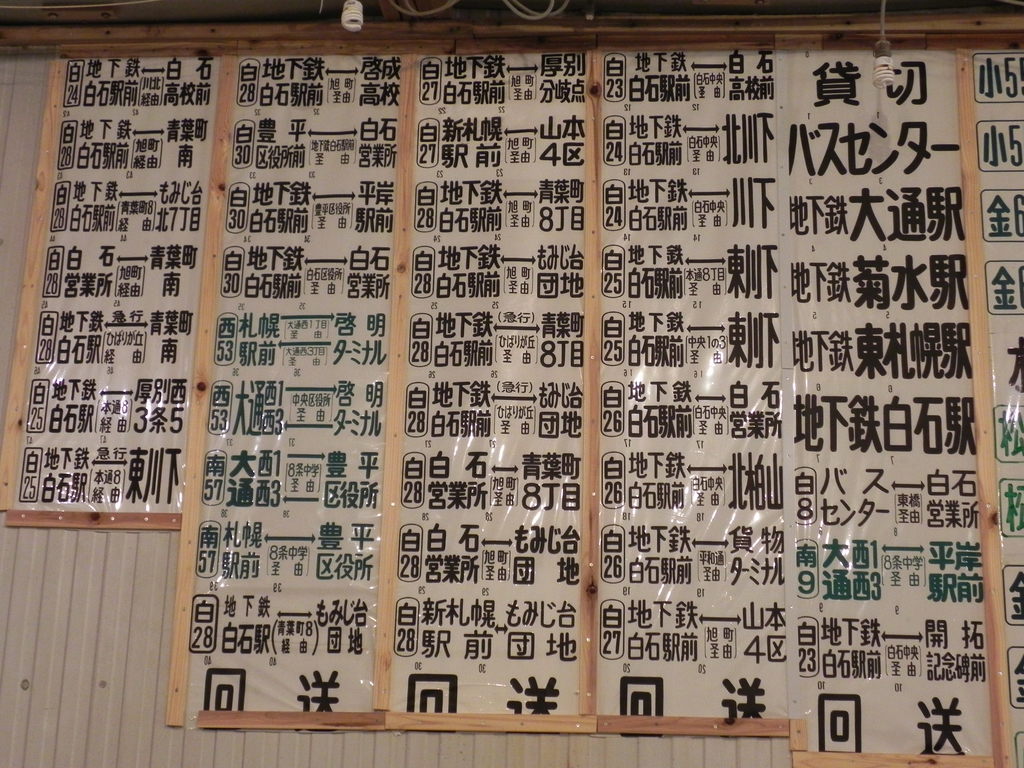 白24 地下鉄白石駅前 ←→ 川北経由 白石高校前
白28 地下鉄白石駅前 ←→ 旭町経由 青葉町南
白28 地下鉄白石駅前 ←→ 青葉町8経由 もみじ台北7丁目
白28 白石営業所 ←→ 旭町経由 青葉町南
白28 地下鉄白石駅 ←急行→ ひばりが丘経由 青葉町南
白25 地下鉄白石駅 ←→ 本通8経由 厚別西3条5
白25 地下鉄白石駅 ←急行→ 本通8経由 東川下
白28 地下鉄白石駅前 ←→ 旭町圣由 啓成高校
白30 豊平区役所前 ←→ 地下鉄白石駅前圣由 白石営業所
白30 地下鉄白石駅前 ←→ 豊平区役所圣由 平岸駅前
白30 地下鉄白石駅前 ←→ 白石区役所圣由 白石営業所
西53 札幌駅前 大通西1丁目圣由 大通西3丁目 啓明ターミナル
西53 大通西1西3 中央区役所圣由 啓明ターミナル
南57 大通西1西3 8条中学圣由 豊平区役所
南57 札幌駅前 ←→ 8条中学圣由 豊平区役所
白28 地下鉄白石駅 ←→ (青葉町8経由) もみじ台団地
回送
白27 地下鉄白石駅前 ←→ 旭町圣由 厚別分岐点
白27 新札幌駅前 ←→ 旭町圣由 山本4区
白28 地下鉄白石駅前 ←→ 旭町圣由 青葉町8丁目
白28 地下鉄白石駅前 ←→ 旭町圣由 もみじ台団地
白28 地下鉄白石駅前 ←(急行)→ ひばりが丘圣由 青葉町8丁目
白28 地下鉄白石駅前 ←(急行)→ ひばりが丘圣由 もみじ台団地
白28 白石営業所 ←→ 旭町圣由 青葉町8丁目
白28 白石営業所 ←→ 旭町圣由 もみじ台団地
白28 新札幌駅前 ←→ もみじ台団地
回送
白23 地下鉄白石駅前 ←→ 白石中央圣由 白石高校前
白24 地下鉄白石駅前 ←→ 白石中央圣由 北川下
白24 地下鉄白石駅前 ←→ 白石中央圣由 川下
白25 地下鉄白石駅前 ←→ 本通8丁目圣由 東川下
白25 地下鉄白石駅前 ←→ 中央1の3圣由 東川下
白26 地下鉄白石駅前 ←→ 白石中央圣由 白石営業所
白26 地下鉄白石駅前 ←→ 白石中央圣由 北柏山
白26 地下鉄白石駅前 ←→ 平和通圣由 貨物ターミナル
白27 地下鉄白石駅前 ←→ 旭町圣由 山本4区
回送
貸切
バスセンター
地下鉄大通駅
地下鉄菊水駅
地下鉄東札幌駅
地下鉄白石駅
白8 バスセンター ←→ 東橋圣由 白石営業所
南9 大通西1西3 ←→ 8条中学圣由 平岸駅前
白23 地下鉄白石駅前 ←→ 白石中央圣由 開拓記念碑前
回送
小5
小5
金6
金6